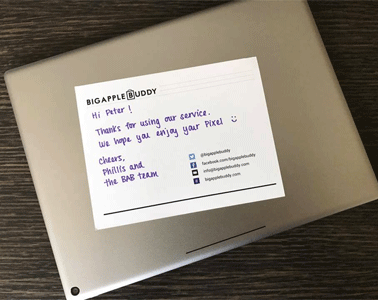 BIGAPPLEBUDDY
Hi Peter!
Thanks for using our service.
We hope you enjoy your Pixel
Cheers,
Phillis and
the BAB team
@bigapplebuddy
facebook.com/bigapplebuddy
info@bigapplebuddy.com
bigapplebuddy.com